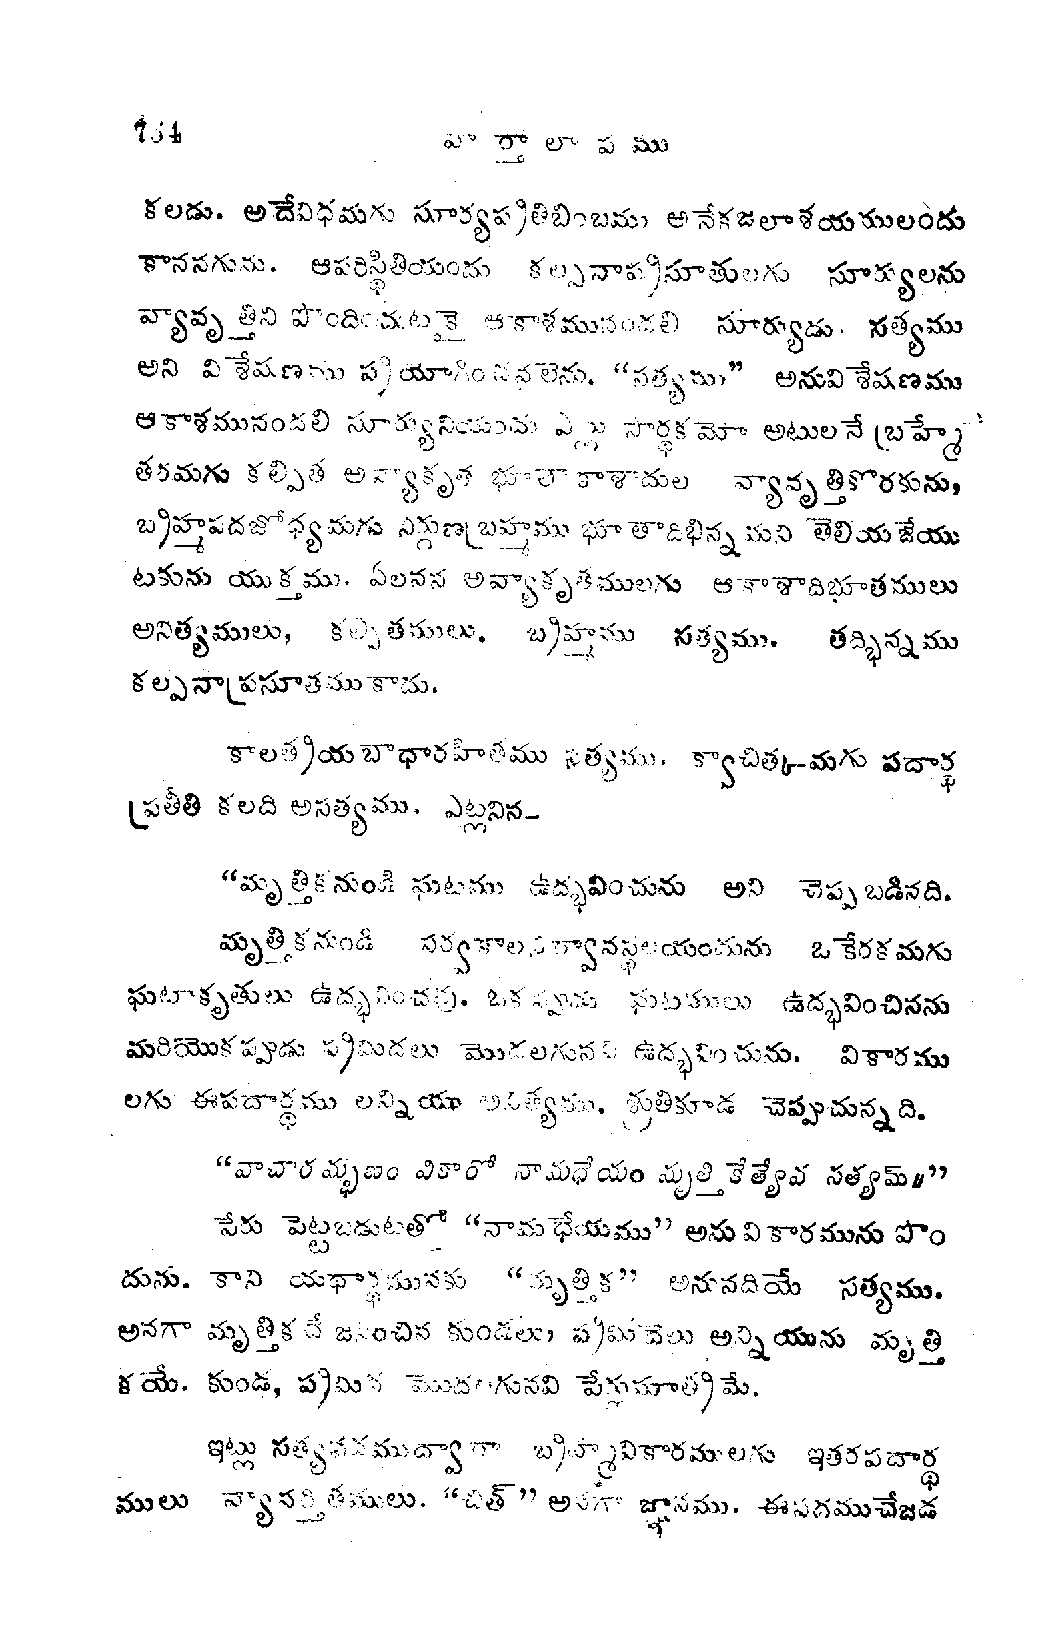 వార్తాలాపము
కలడు. అదేవిధమగు సూర్యప్రతిబింబము అనేకజలాశయములందు
కాననగును. ఆపరిస్థితియందు కల్పనాప్రసూతులగు సూర్యులను
వ్యావృత్తిని పొందించుటకై ఆకాశమునందలి సూర్యుడు. సత్యము
అని విశేషణము ప్రయోగింపవలెను. “సత్యము” అనువిశేషణము
ఆకాశమునందలి సూర్యునియందు ఎట్లు సార్థకమో అటులనే బ్రహ్మే
తరమగు కల్పిత అవ్యాకృత భూతాకాశాదుల వ్యావృత్తికొరకును,
బ్రహ్మపదబోధ్యమగు నిర్గుణబ్రహ్మము భూతాదిభిన్నమని తెలియజేయు
టకును యుక్తము. ఏలనన అవ్యాకృతములగు ఆకాశాదిభూతములు
అనిత్యములు, కల్పితములు. బ్రహ్మము సత్యము. తద్భిన్నము
కల్పనాప్రసూతముకాదు.
కాలత్రయబాధారహితము సత్యము. క్వాచిత్కమగు పదార్థ
ప్రతీతి కలది అసత్యము. ఎట్లనిన–
“మృత్తికనుండి ఘటము ఉద్భవించును అని చెప్పబడినది.
మృత్తికనుండి సర్వకాల ఒకేరకమగు
ఘటాకృతులు ఉద్భవించవు. ఒకప్పుడు ఘటములు ఉద్భవించినను
మరియొకప్పుడు ప్రమిదలు మొదలగునవి ఉద్భవించును. వికారము
లగు ఈపదార్థము లన్నియూ అసత్యము. శ్రుతికూడ చెప్పుచున్నది.
“వాచారమ్భణం వికారో నామధేయం మృత్తికేత్యేవ సత్యమ్॥”
పేరు పెట్టబడుటతో “నామధేయము” అను వికారమును పొం
దును. కాని యథార్థమునకు “మృత్తిక” అనునదియే సత్యము.
అనగా మృత్తికచే జనించిన కుండలు, ప్రమిదలు అన్నియును మృత్తి
కయే. కుండ, ప్రమిద మొదలగునవి పేర్లుమాత్రమే.
ఇట్లు సత్యపదముద్వారా బ్రహ్మవికారములగు ఇతరపదార్థ
ములు వ్యావర్తితములు. “చిత్” అనగా జ్ఞానము. ఈపదముచేజడ